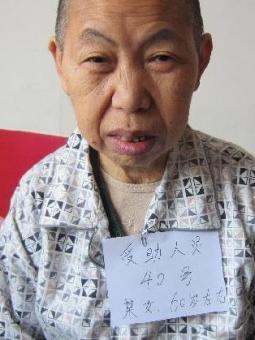 受助人员
42号
某女、60岁左右